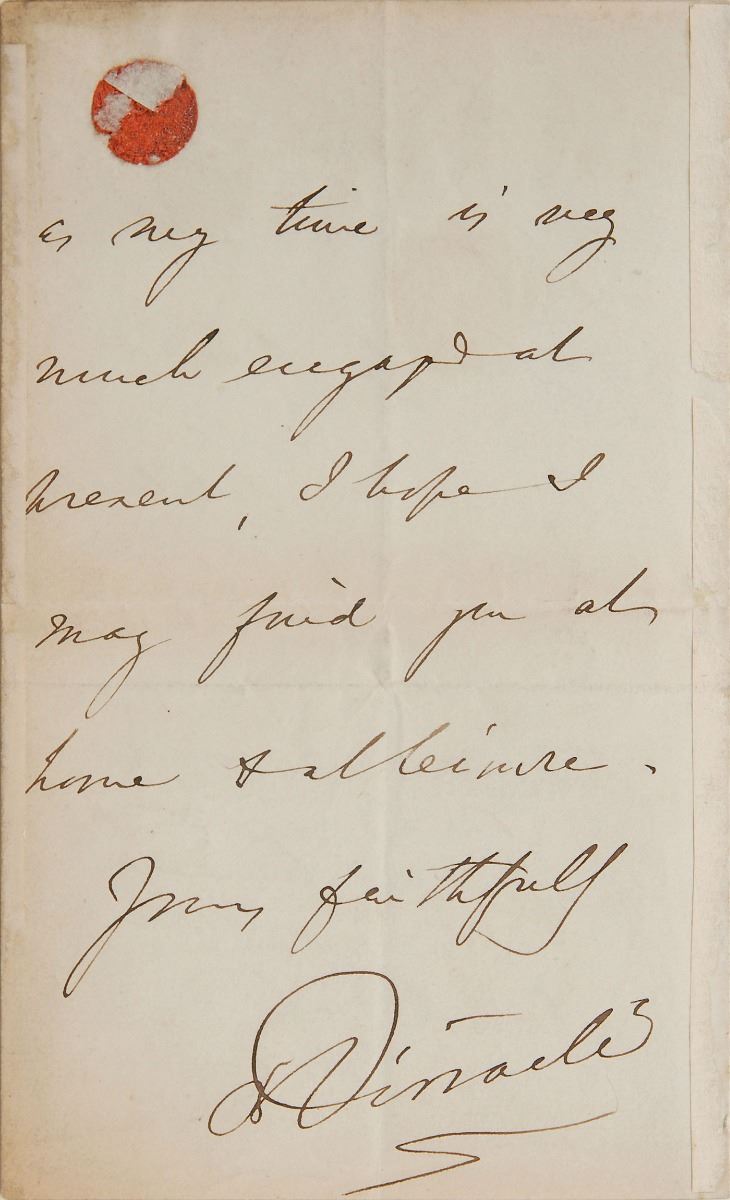 as my time is very
much engaged at
present, I hope I
may find you at
home & at leisure.
Yours faithfully
B Disraeli